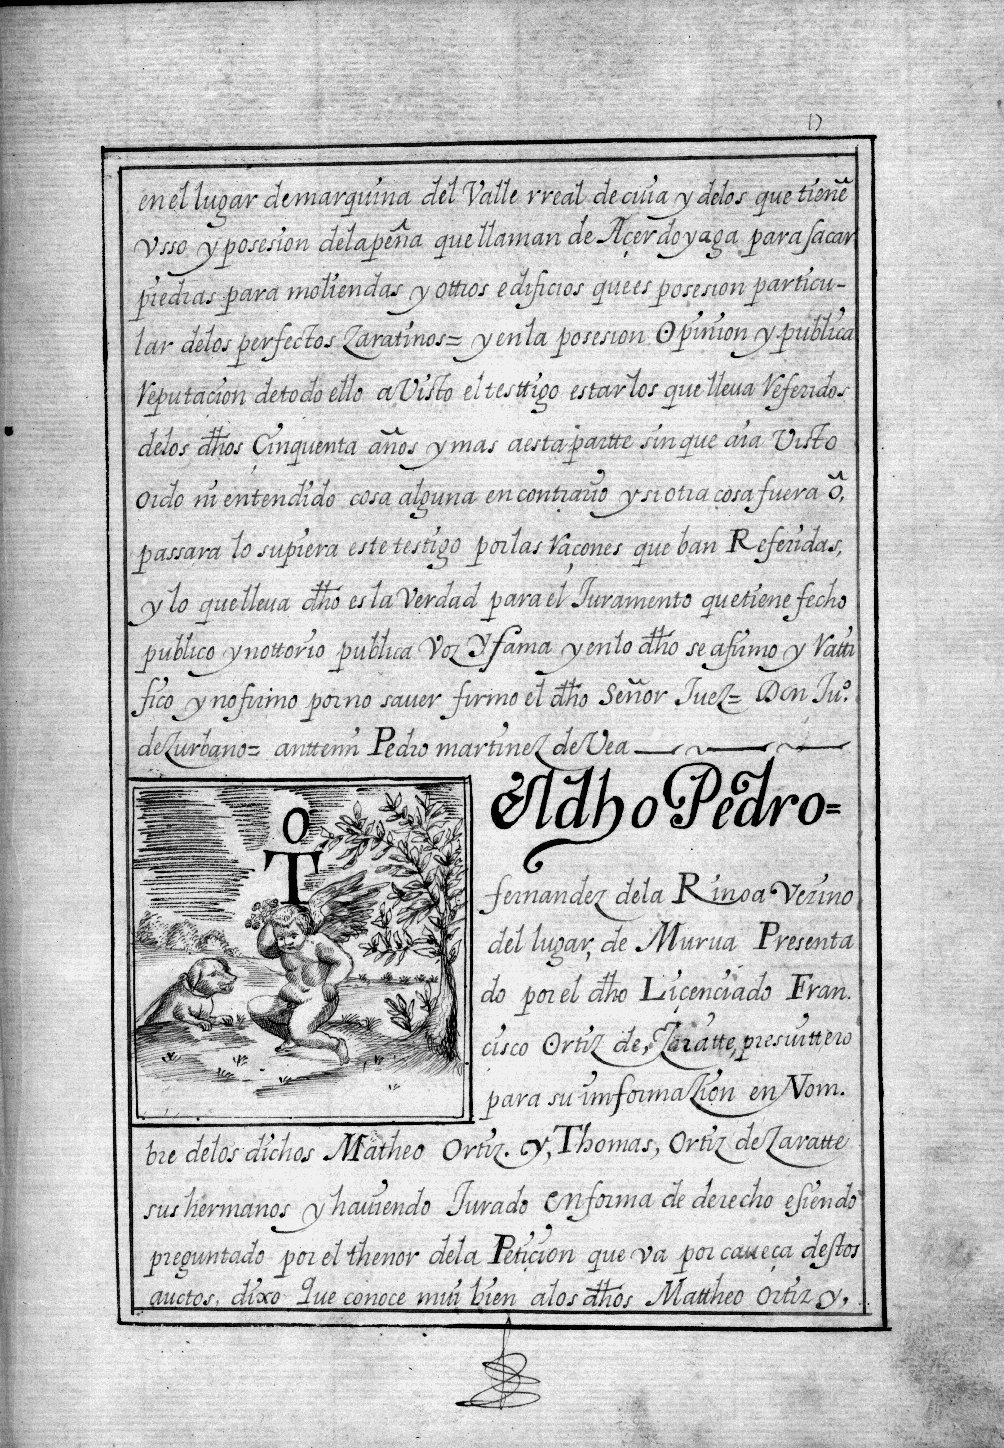 17
en el lugar de marquina del Valle rreal de ciuia y delos que tienẽ
vsso y posesion dela peña que llaman de Açerdoyaga para sacar
piedras para moliendas y ottros edificios que es posesion particu-
lar delos perfectos Zaratinos= y en la posesion Opinion y publica
Reputacion de todo ello a Visto el testtigo estar los que lleua Referidos
delos dhos Çinquenta años y mas a esta partte sin que aia Visto
Oido ni entendido cosa alguna en contrario y si otra cosa fuera õ,
passara lo supiera este testigo por las Raçones que ban Referidas,
y lo que lleua dho es la Verdad para el Juramento que tiene fecho
publico y nottorio publica Voz Y fama y en lo dho se afirmo y Ratti
fico y no firmo por no sauer firmo el dho Señor Juez= Don Ju.º
de Zurbano= anttemi Pedro martinez de Vea
O
T
El dho Pedro=
fernandez dela Rinoa Vezino
del lugar, de Murua Presenta
do por el dho Liçenciado Fran.
cisco Ortiz de, Zaratte, presuittero
para su imformazion en Nom.
bre delos dichos Matheo Ortiz. y, Thomas, Ortiz de Zaratte
sus hermanos y hauiendo Jurado en forma de derecho e siendo
preguntado por el thenor dela Petiçion que va por caueça destos
auctos, dixo Que conoce mui bien alos dhos Mattheo Ortiz y,